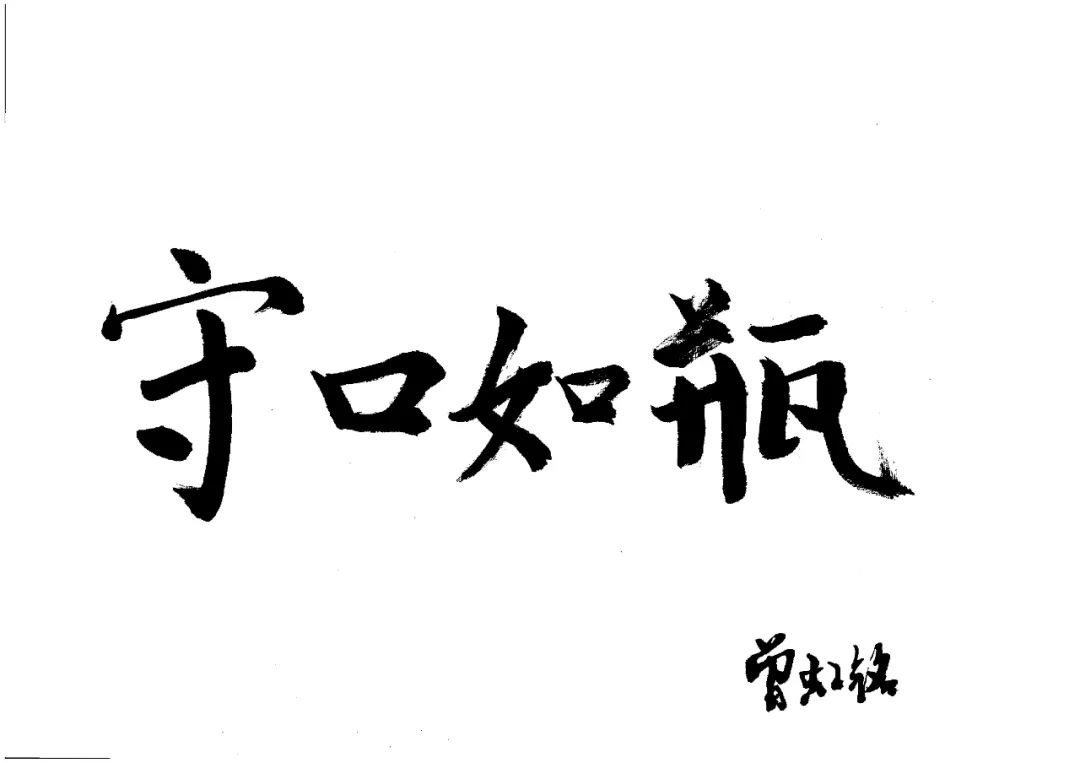 守口如瓶
曾虹铭